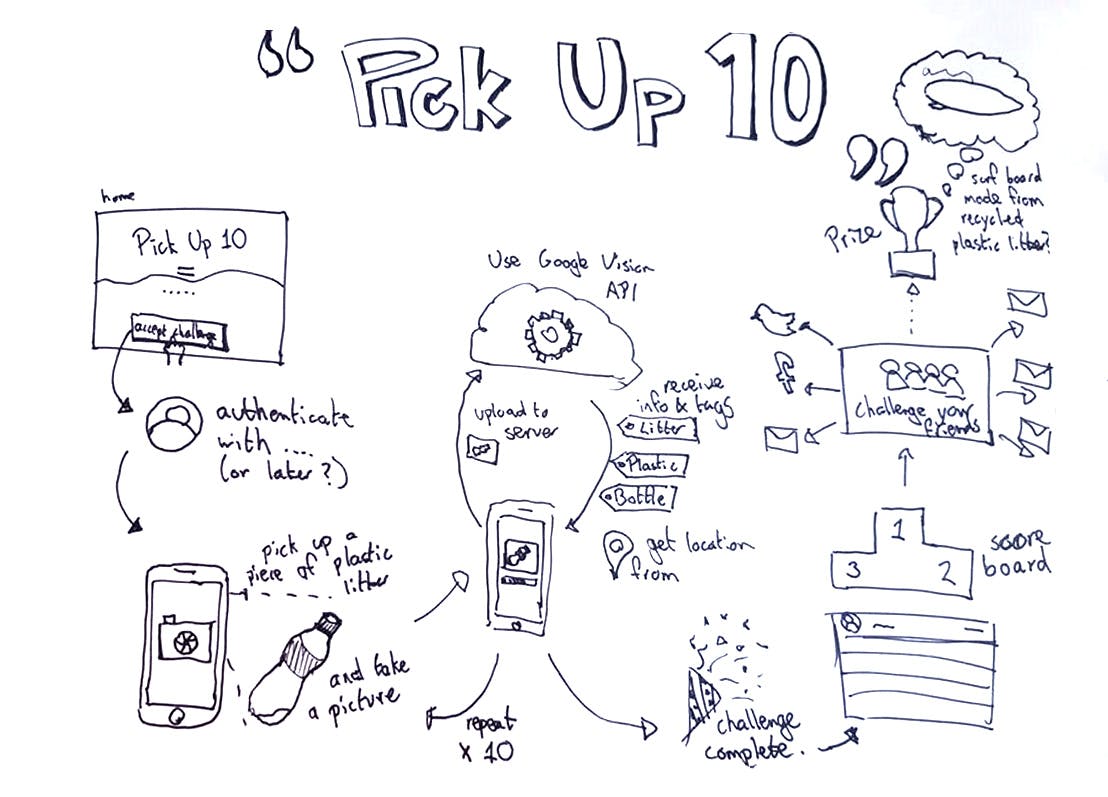 "Pick Up 10"
home
Pick Up 10
accept challenge
authenticate
with ....
(or later?)
pick up a
piece of plastic
litter
and take
a picture
Use Google Vision
API
upload to
server
receive
info & tags
Litter
Plastic
Bottle
get location
from
repeat
x 10
challenge
complete.
score
board
1
3 2
challenge your
friends
f
Prize
surf board
made from
recycled
plastic litter?